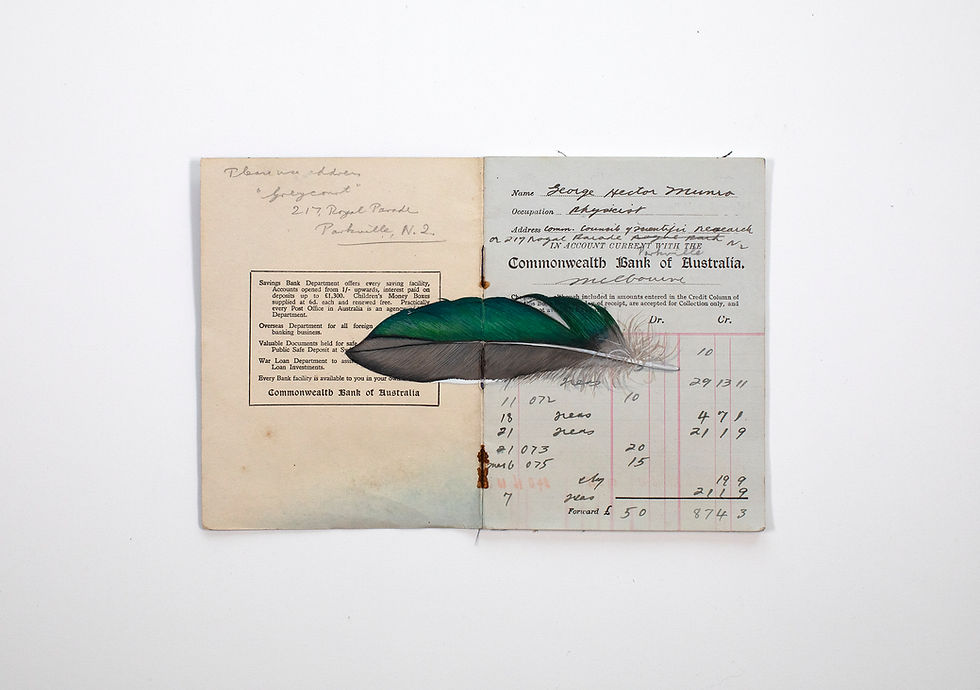 Please use address
"Greycourt"
217, Royal Parade
Parkville, N.2.
Savings Bank Department offers every saving facility,
Accounts opened from 1/- upwards, interest paid on
deposits up to £1,300. Children's Money Boxes
supplied at 6d. each and renewed free. Practically
every Post Office in Australia is an agency of the
Department.
Overseas Department for all foreign
banking business.
Valuable Documents held for safe
Public Safe Deposit at Sy
War Loan Department to assi
Loan Investments.
Every Bank facility is available to you in your own
Commonwealth Bank of Australia
Name George Hector Munro
Occupation Physicist
Address Comm. Council of Scientific Research
or 217 Royal Parade N2
Parkville
IN ACCOUNT CURRENT WITH THE
Commonwealth Bank of Australia.
Melbourne
although included in amounts entered in the Credit Column of
of receipt, are accepted for Collection only, and
Dr. Cr.
10
29 13 11
11 072 10
18 4 7 1
21 21 1 9
21 073 20
6 075 15
chq 19 9
7 21 1 9
Forward £ 50 87 4 3